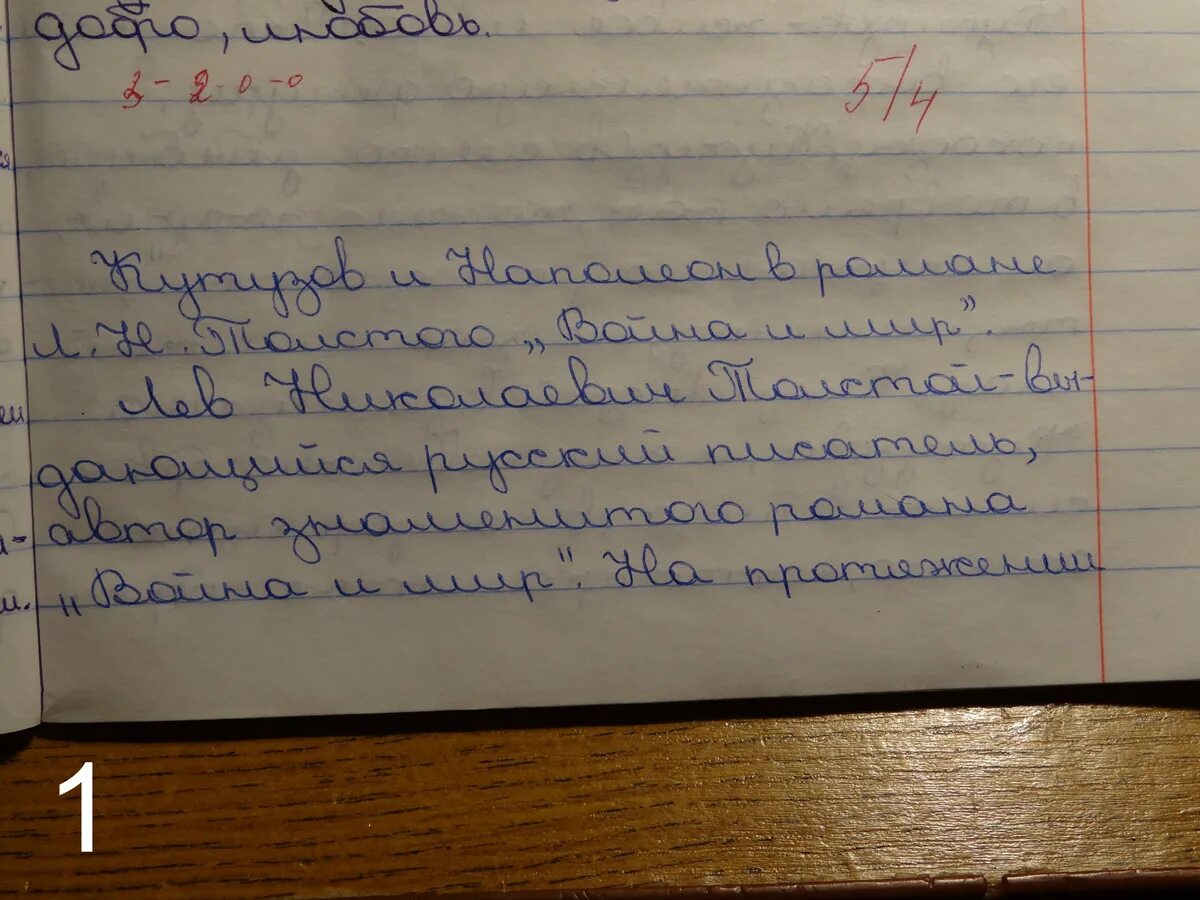 добро, любовь.
3 - 2 - 0 - 0
5/4
Кутузов и Наполеон в романе
Л. Н. Толстого „Война и мир".
Лев Николаевич Толстой - вы-
дающийся русский писатель,
автор знаменитого романа
„Война и мир". На протяжении
1